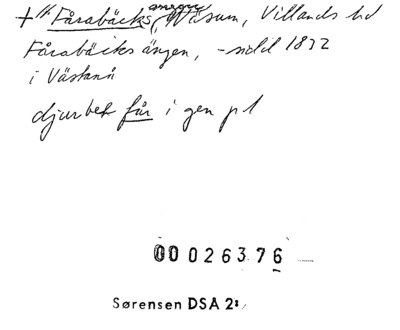 + Fårabäcks ängen, Näsum, Villands hd
Fårabäcks ängen, - 1872
i Västanå
djurbet får i gen pl
00026376
Sørensen DSA 2: